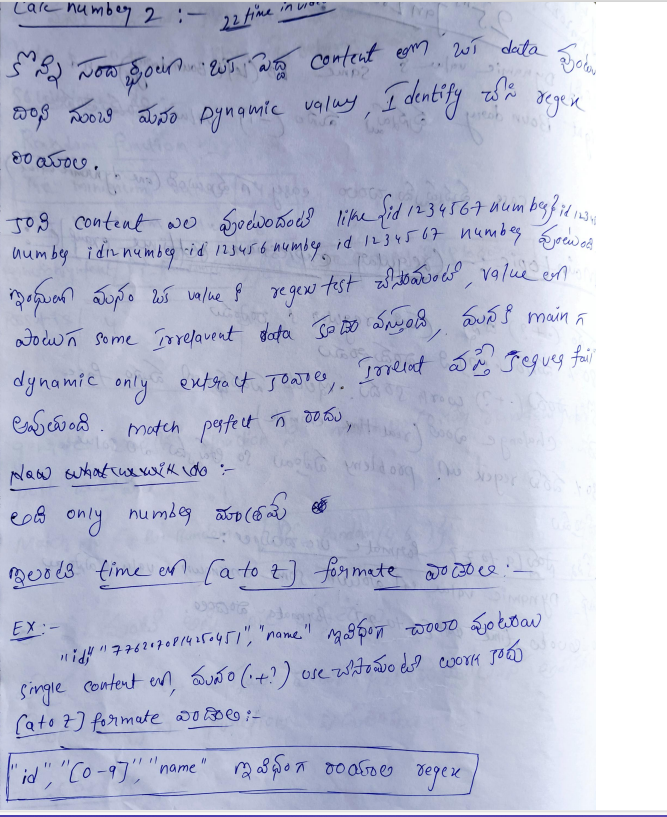 Case number 2 :- 22 time in
కొన్ని సందర్భంలో ఒక పెద్ద content లో ఒక data వుంటు
దాని నుంచి మనం Dynamic values, Identify చేసి regex
రాయాలి.
కాని content ఎలా వుంటుందంటే like {id 1234567 number} id 12345
number id12 number id 123456 number, id 1234567 number వుంటుంది
ఇందులో మనం ఒక value కి regex test చేసామంటే, value లో
పాటుగ some Irrelavent data కూడా వస్తుంది, మనకి main గ
dynamic only extract కావాలి,. వస్తే fail
అవుతుంది. match perfect గ రాదు,
Now what we will do :-
అది only number మాత్రమే
ఇలాంటి time లో [a to z] formate వాడాలి :-
EX:-
"id", "7762070814250451", "name" ఇవిధంగ చాలా వుంటాయి
single content లో, మనం (.+?) use చేసామంటే work కాదు
[a to z] formate వాడాలి :-
"id", "[0-9]", "name" ఇవిధంగ రాయాలి regex